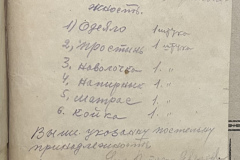 жность.
1) Одеяло 1 штука
2, Простинь 1 штука
3, Наволочка 1 "
4, Наперник 1. "
5, Матрас 1. "
6. Койка 1. "
Выше указанну постельну
принадлежность